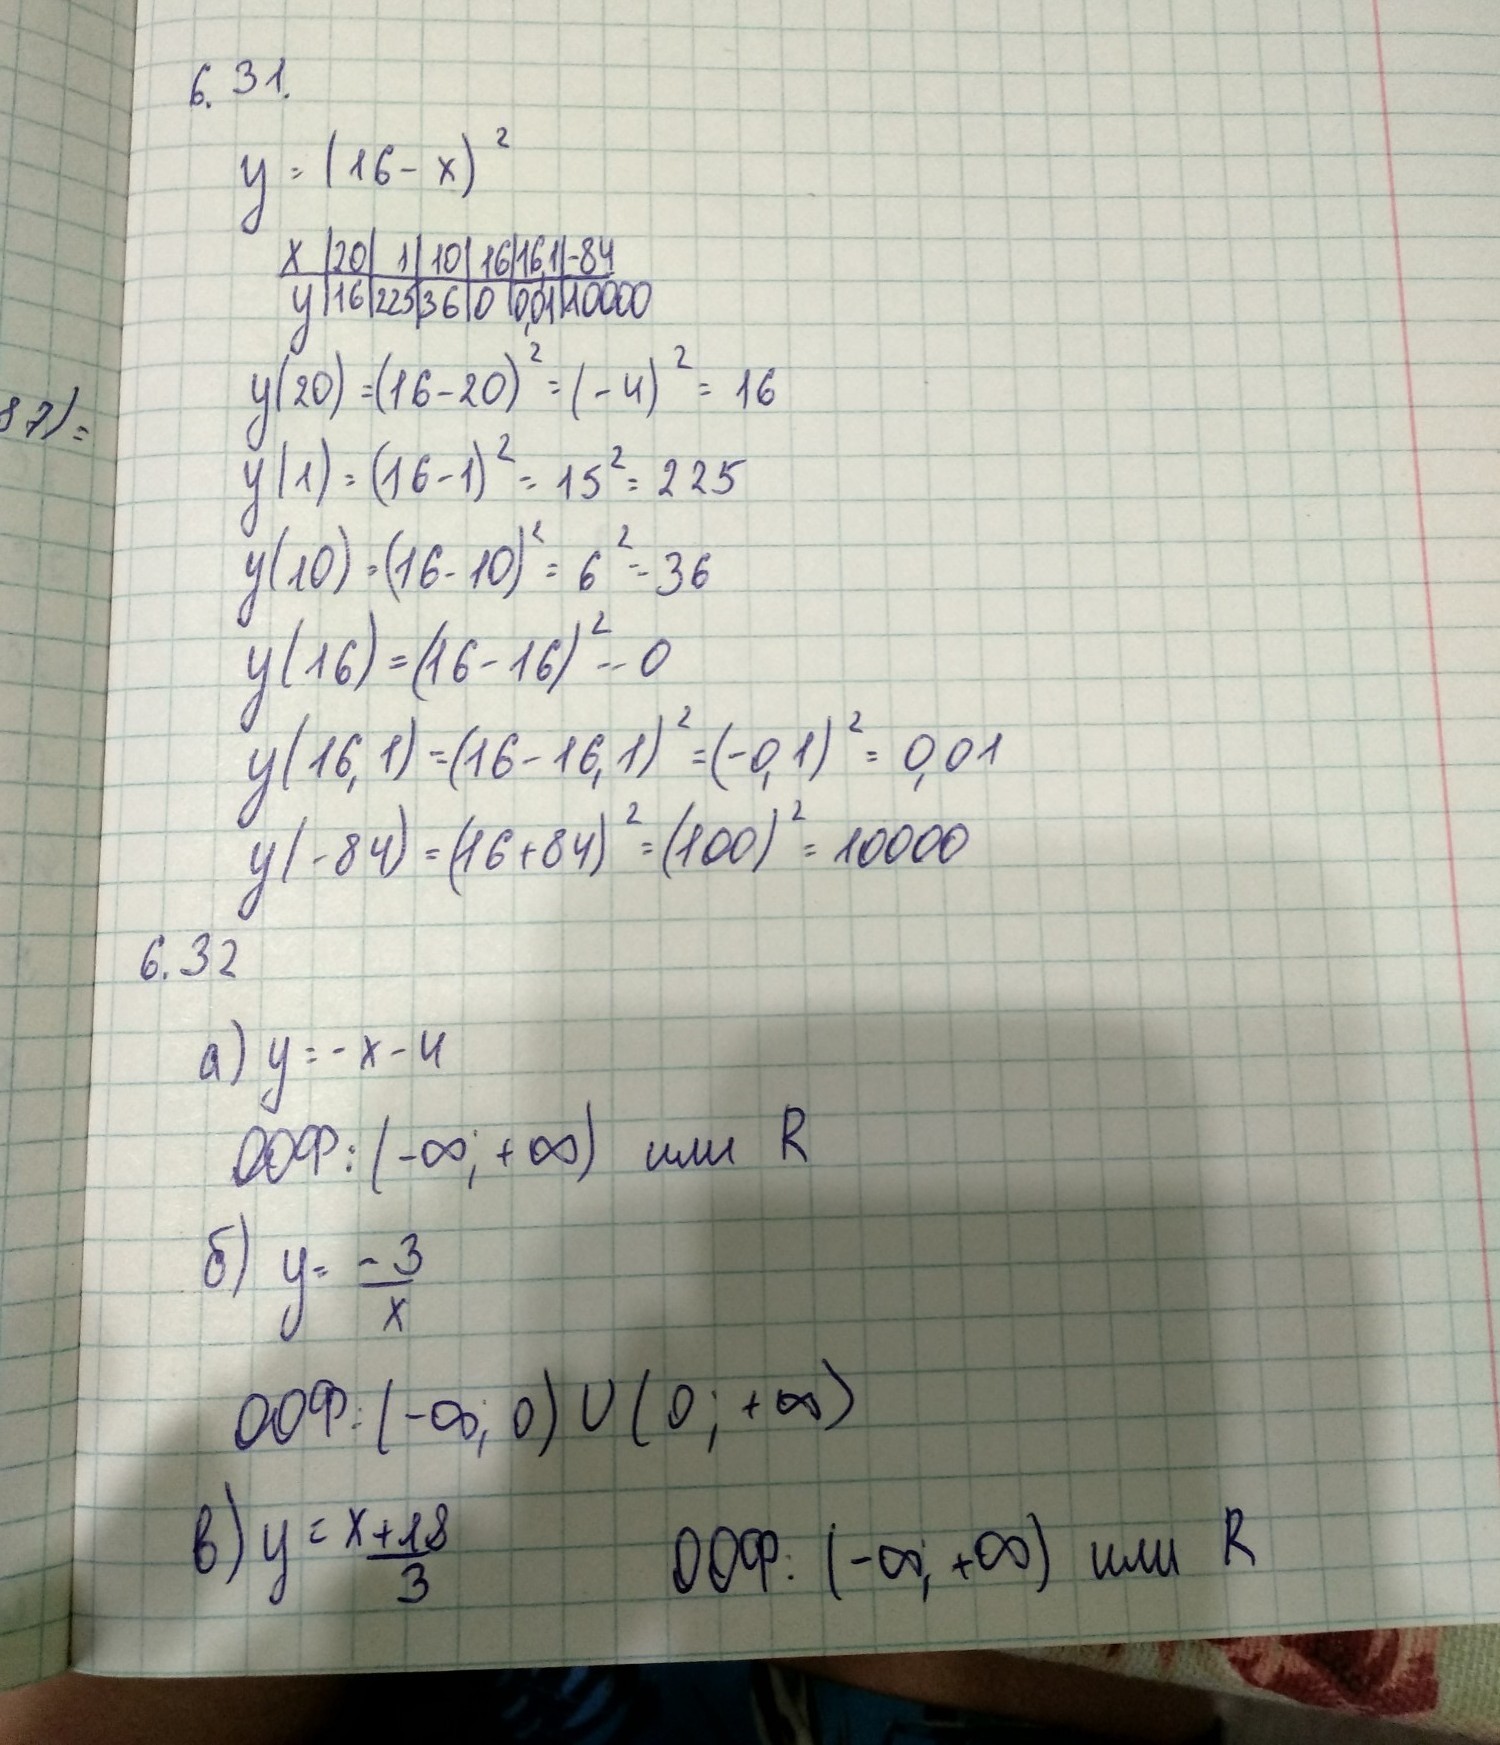 6.31.
y = (16 - x)²
x | 20 | 1 | 10 | 16 | 16,1 | -84
y | 16 | 225 | 36 | 0 | 0,01 | 10000
87) =
y(20) = (16-20)² = (-4)² = 16
y(1) = (16-1)² = 15² = 225
y(10) = (16-10)² = 6² = 36
y(16) = (16-16)² = 0
y(16,1) = (16-16,1)² = (-0,1)² = 0,01
y(-84) = (16+84)² = (100)² = 10000
6.32
а) y = -x-4
ООФ: (-∞; +∞) или R
б) y = -3/x
ООФ: (-∞; 0) U (0; +∞)
в) y = x+18/3 ООФ: (-∞; +∞) или R